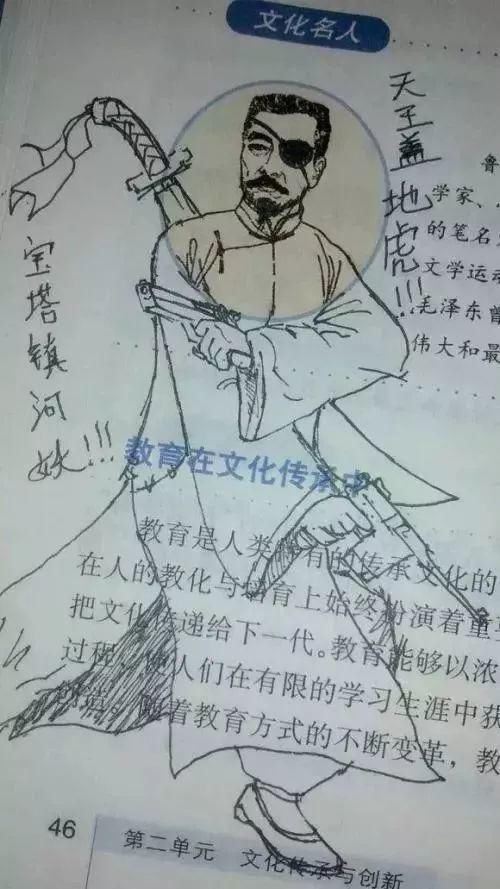 文化名人
天王盖地虎!!!
宝塔镇河妖!!!
鲁
学家、
的笔名
文学运动
毛泽东曾
伟大和最
教育在文化传承中
教育是人类特有的传承文化的
在人的教化与培育上始终扮演着重要
把文化传递给下一代。教育能够以浓
过程,使人们在有限的学习生涯中获
着教育方式的不断变革,教
46
第二单元 文化传承与创新